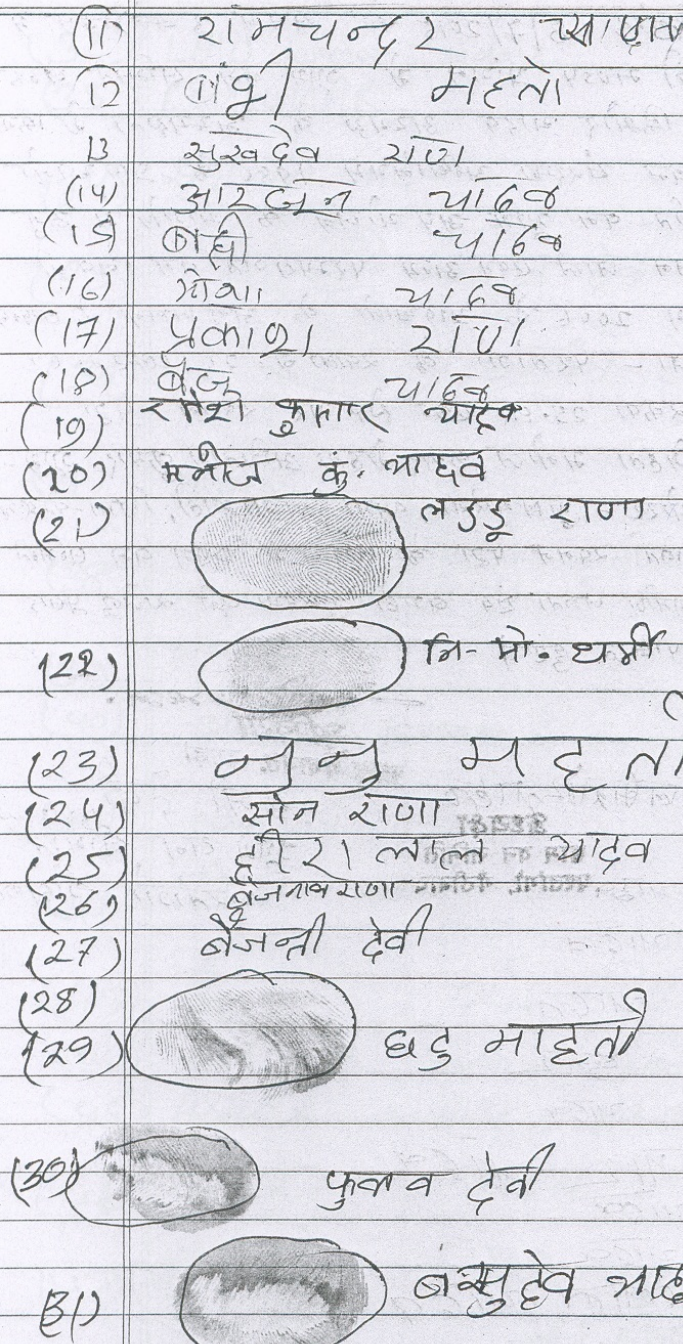 (11) रामचन्दर
12 महतो
13 सुखदेव राणा
(14) आरजून यादव
(15) बद्री यादव
(16) यादव
(17) प्रकाश राणा
(18) बैजू यादव
(19) रमेश कुमार यादव
(20) मनोज कुं. यादव
(21) लड्डू राणा
(22) नि- मो. धर्मी
(23) नुनु महतो
(24) सोन राणा
(25) हीरा लाल यादव
(26) बैजनाथ राणा
(27) बैजन्ती देवी
(28)
(29) छटु माहतो
(30) देवी
(31) बासुदेव